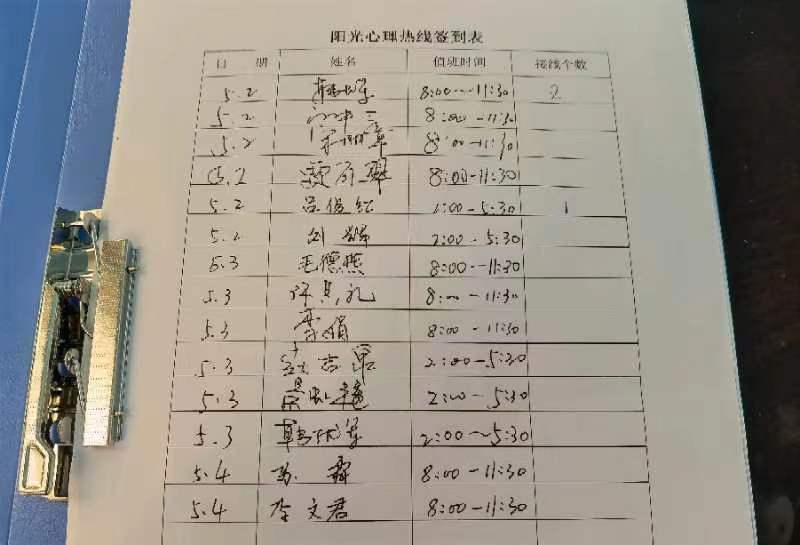 阳光心理热线签到表
日 期 姓名 值班时间 接线个数
5.2 8:00~11:30 2
5.2 8:00-11:30
5.2 8:00-11:30
5.2 8:00-11:30
5.2 吕俊红 2:00-5:30 1
5.2 刘 2:00-5:30
5.3 毛德燕 8:00-11:30
5.3 8:00-11:30
5.3 李娟 8:00-11:30
5.3 2:00-5:30
5.3 2:00-5:30
5.3 2:00~5:30
5.4 8:00-11:30
5.4 李文君 8:00-11:30